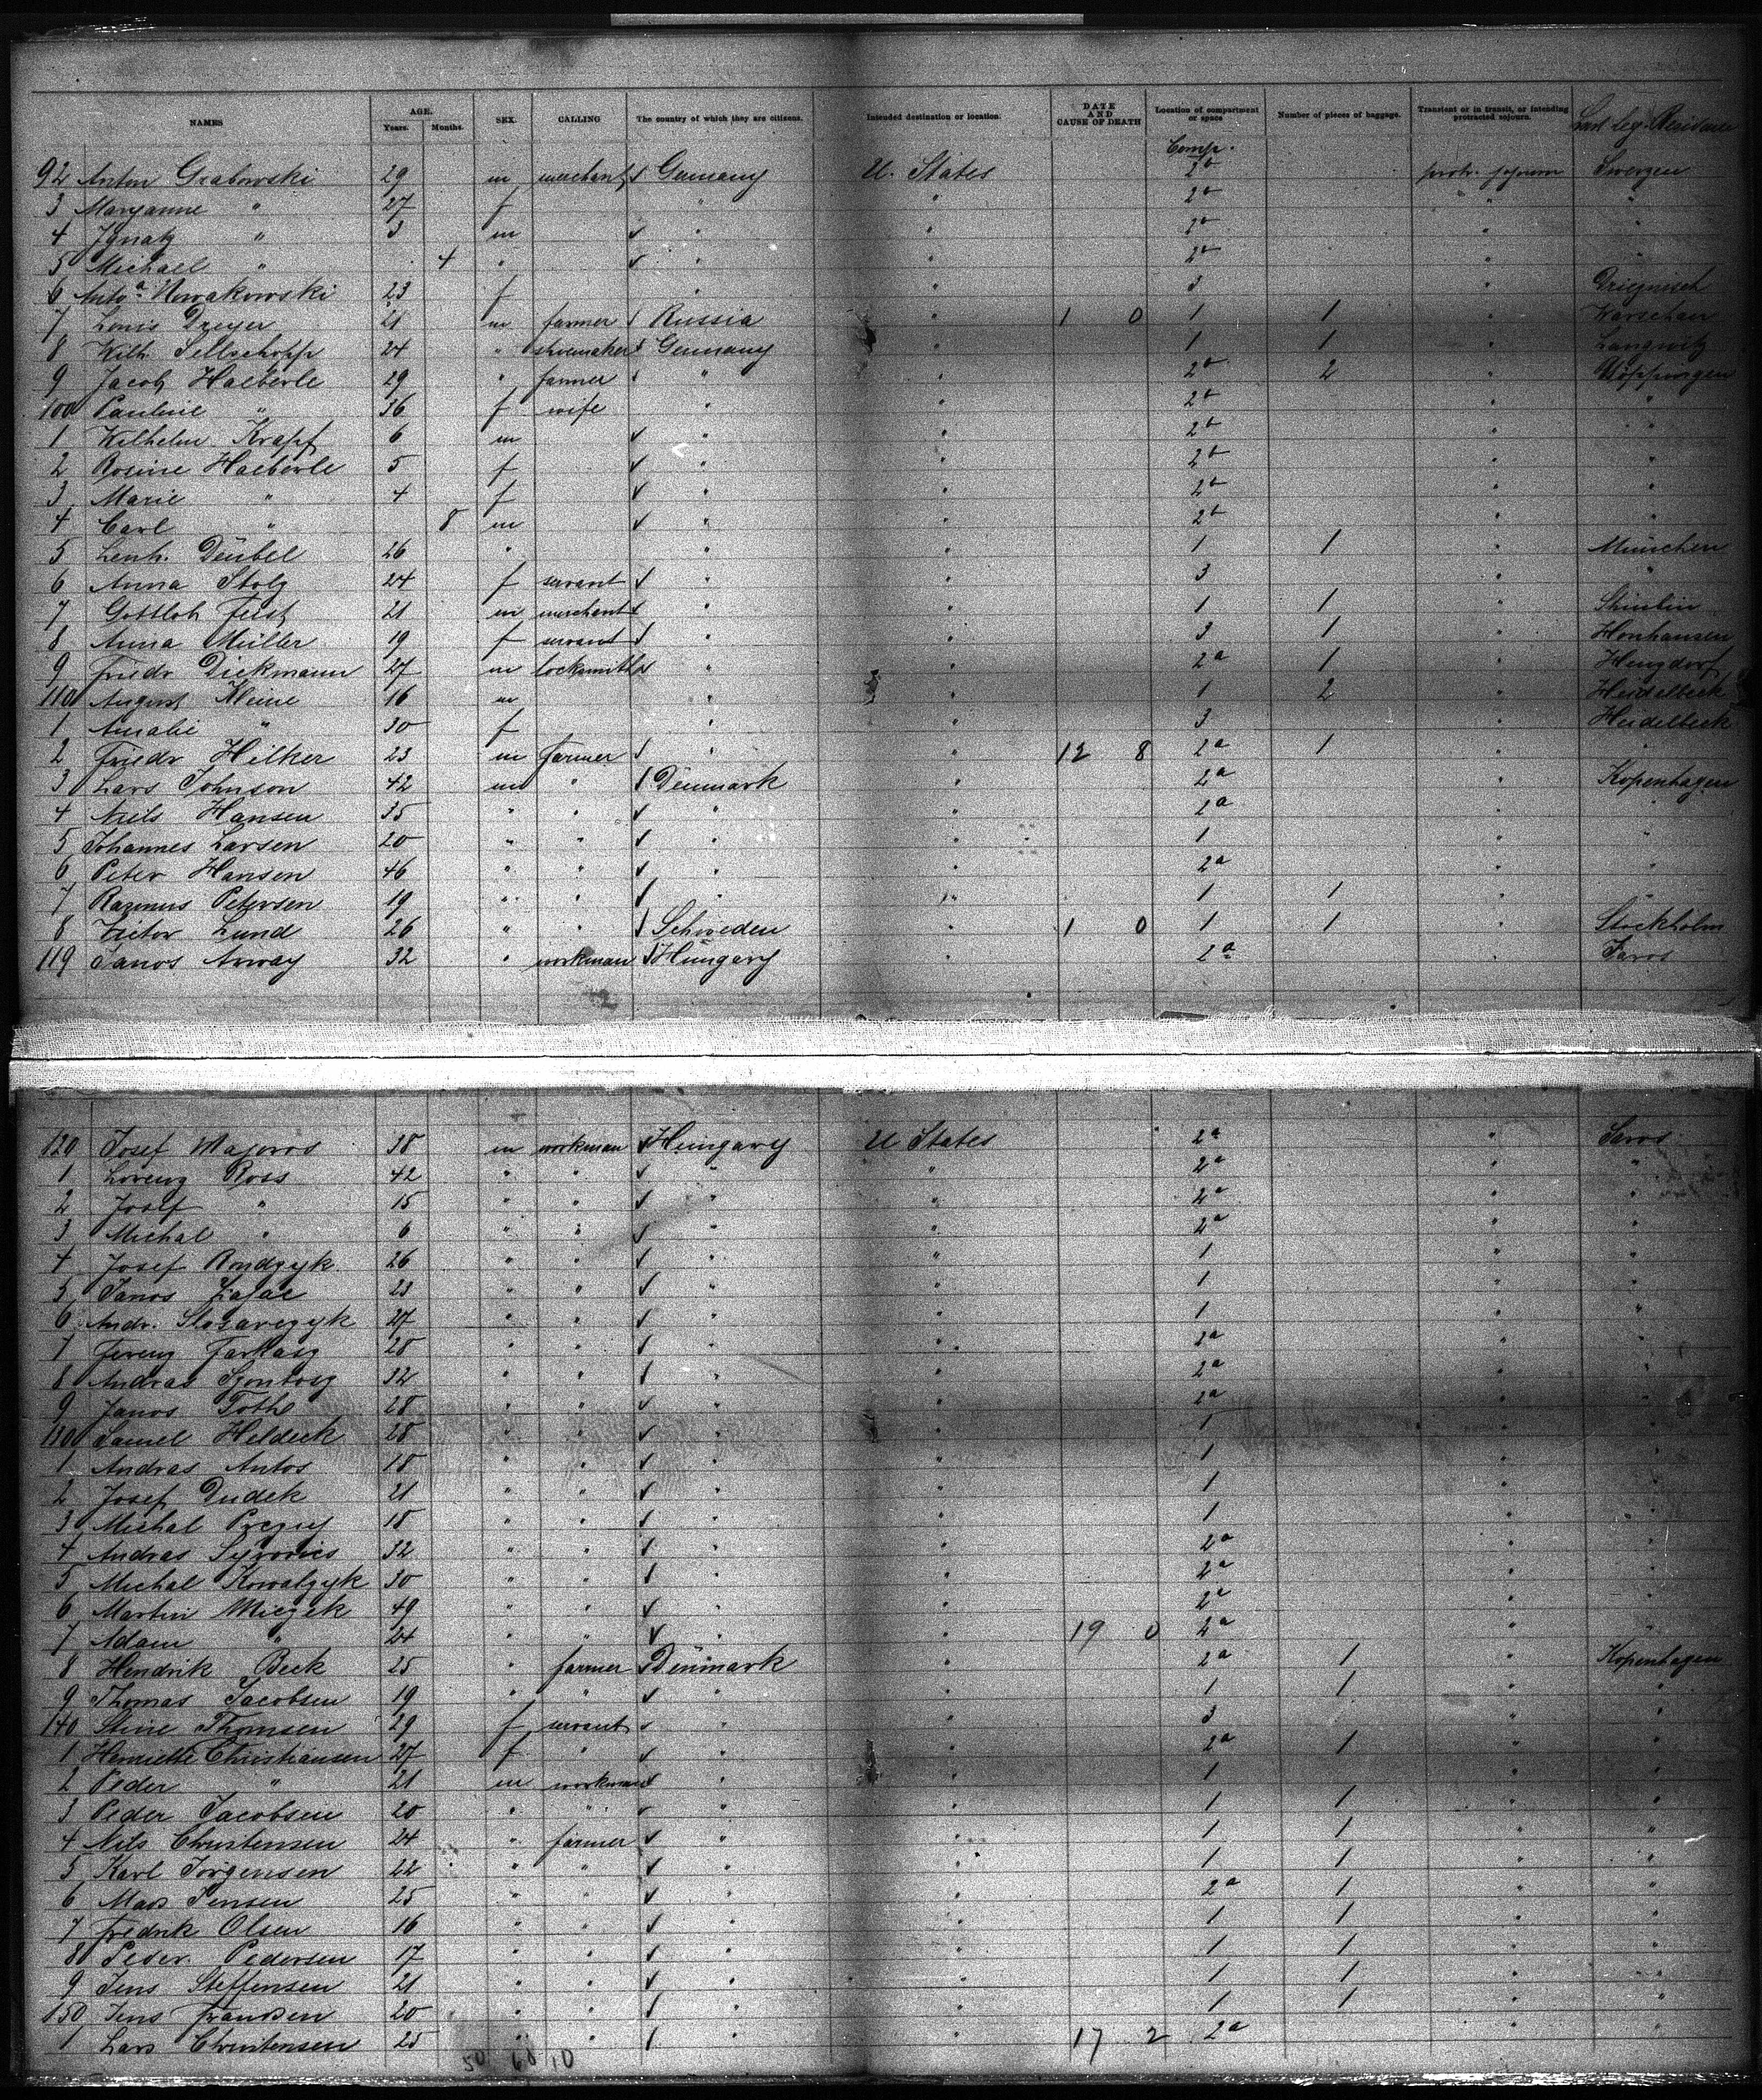 NAMES AGE. Years. Months. SEX. CALLING The country of which they are citizens. Intended destination or location. DATE AND CAUSE OF DEATH Location of compartment or space Number of pieces of baggage. Transient or in transit, or intending protracted sojourn. Last leg. Residence
Comp.
92 Anton Grabowski 29 m merchant Germany U. States 2b protr. sojourn
3 Maryanne " 27 f " " 2b " "
4 Ignatz " 3 m " " 2b " "
5 Michael " 4 " " " 2b " "
6 Anto.a Nowakowski 23 f " " 3 "
7 Louis Dreyer 21 m farmer Russia " 1 0 1 1 " Warschau
8 Wilh. Sellschopp 24 " shoemaker Germany " 1 1 " Langwitz
9 Jacob Haeberle 29 " farmer " " 2b 2 "
100 Pauline " 36 f wife " " 2b " "
1 Wilhelm Krapf 6 m " " 2b " "
2 Rosine Haeberle 5 f " " 2b " "
3 Marie " 4 f " " 2b " "
4 Carl " 8 m " " 2b " "
5 Lenh. Deubel 26 " " " 1 1 " München
6 Anna Stolz 24 f servant " " 3 " "
7 Gottlob Feist 21 m merchant " " 1 1 "
8 Anna Müller 19 f servant " " 3 1 " Honhausen
9 Friedr Diekmann 27 m locksmith " " 2a 1 " Hengdorf
110 August Kleine 16 m " " 1 2 " Heidelbeck
1 Amalie " 30 f " " 3 " Heidelbeck
2 Friedr Hilker 23 m farmer " " 12 8 2a 1 " "
3 Lars Johnson 42 m " Denmark " 2a " Kopenhagen
4 Niels Hansen 35 " " " " 2a " "
5 Johannes Larsen 20 " " " " 1 " "
6 Peter Hansen 46 " " " " 2a " "
7 Razmus Petersen 19 " " " " 1 1 " "
8 Victor Lund 26 " " Schweden " 1 0 1 1 " Stockholm
119 Janos Arway 32 " workman Hungary " 2a " Saros
120 Josef Majoros 38 m workman Hungary U States 2a " Saros
1 Lorenz Ross 42 " " " " 2a " "
2 Josef " 15 " " " " 2a " "
3 Michal " 6 " " " " 2a " "
4 Josef Rondzyk 26 " " " " 1 " "
5 Janos Zajac 23 " " " " 1 " "
6 Andr. Slosarczyk 27 " " " " 1 " "
7 Ferenz Farkasz 28 " " " " 2a " "
8 Andras Szontosz 32 " " " " 2a " "
9 Janos Toth 28 " " " " 2a " "
130 Samel Heldeck 28 " " " " 1 " "
1 Andras Antos 18 " " " " 1 " "
2 Josef Dudek 21 " " " " 1 " "
3 Michal 18 " " " " 1 " "
4 Andras 32 " " " " 2a " "
5 Michal Kowalzyk 30 " " " " 2a " "
6 Martin Miczek 49 " " " " 2a " "
7 Adam " 24 " " " " 19 0 2a " "
8 Hendrik Beck 25 " farmer Denmark " 2a 1 " Kopenhagen
9 Thomas Jacobsen 19 " " " " 1 1 " "
140 Stine Thomsen 29 f servant " " 3 " "
1 Henriette Christiansen 27 f " " " 2a 1 " "
2 Peder " 21 m workman " " 1 " "
3 Peder Jacobsen 20 " " " " 1 1 " "
4 Nils Christensen 24 " farmer " " 1 1 " "
5 Karl Jörgensen 22 " " " " 1 1 " "
6 Mads Jensen 25 " " " " 2a 1 " "
7 Fredrik Olsen 16 " " " " 1 1 " "
8 Peder Pedersen 17 " " " " 1 1 " "
9 Jens Steffensen 21 " " " " 1 1 " "
150 Jens Frandsen 20 " " " " 1 1 " "
1 Lars Christensen 25 " " " " 17 2 2a " "
50 60 10